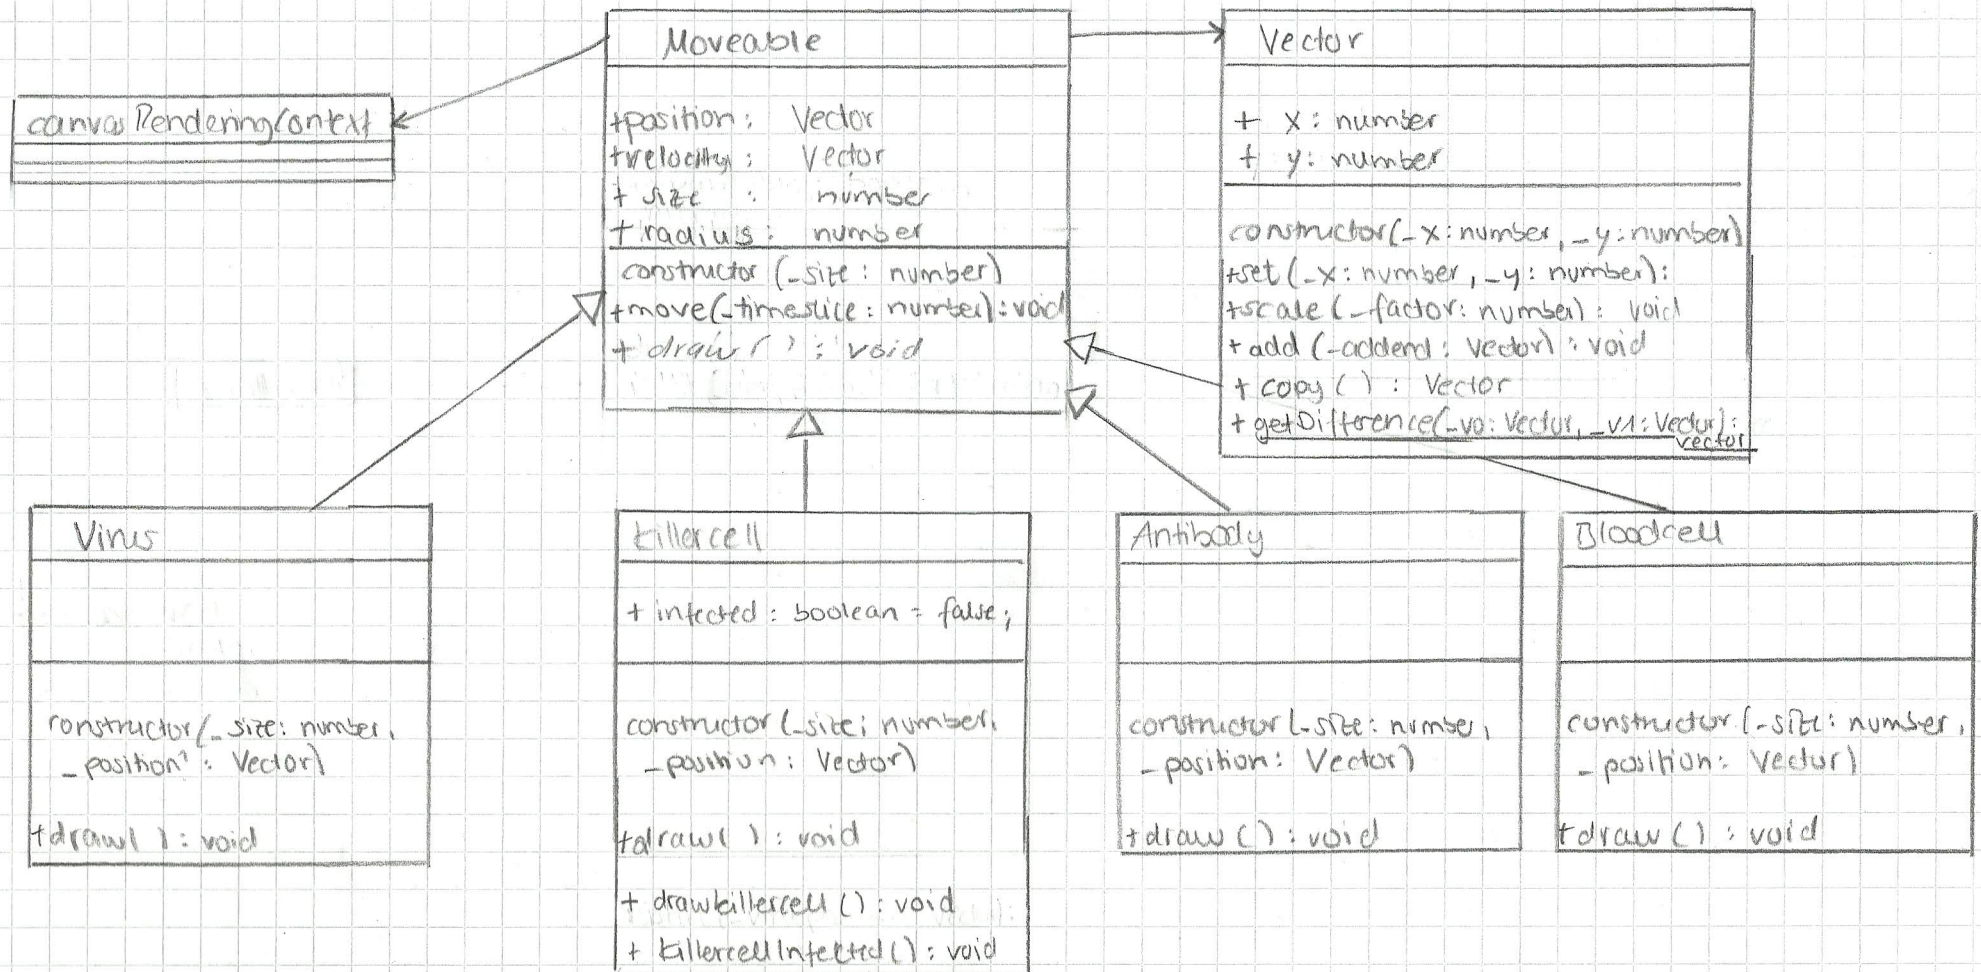 Moveable
+position: Vector
+velocity: Vector
+ size : number
+ radius: number
constructor (_size: number)
+move(_timeslice: number): void
+ draw ( ) : void
Vector
+ x: number
+ y: number
constructor(_x: number, _y: number)
+set (_x: number, _y: number):
+scale (_factor: number): void
+ add (_addend: Vector): void
+ copy ( ) : Vector
+ getDifference(_v0: Vector, _v1: Vector):
vector
canvasRenderingContext
Virus
constructor(_size: number,
_position: Vector)
+draw( ): void
killercell
+ infected: boolean = false;
constructor (_size: number,
_position: Vector)
+draw( ): void
+ drawkillercell (): void
+ killercellInfected(): void
Antibody
constructor (_size: number,
_position: Vector)
+draw (): void
Bloodcell
constructor (_size: number,
_position: Vector)
+draw ( ) : void